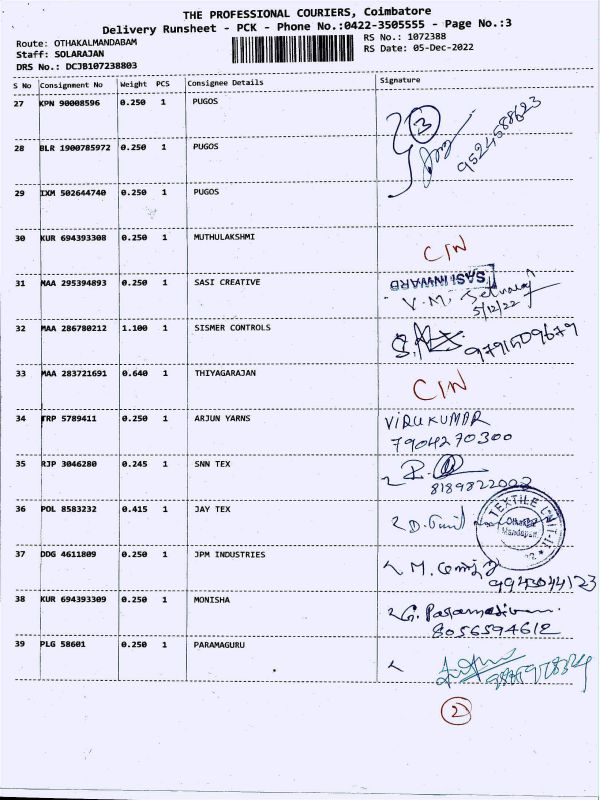 THE PROFESSIONAL COURIERS, Coimbatore
Delivery Runsheet - PCK - Phone No.:0422-3505555 - Page No.:3
Route: OTHAKALMANDABAM
Staff: SOLARAJAN
DRS No.: DCJB107238803
RS No.: 1072388
RS Date: 05-Dec-2022
S No Consignment No Weight PCS Consignee Details Signature
27 KPN 90008596 0.250 1 PUGOS
3
9524588623
28 BLR 1900785972 0.250 1 PUGOS
29 IXM 502644740 0.250 1 PUGOS
30 KUR 694393308 0.250 1 MUTHULAKSHMI CIN
31 MAA 295394893 0.250 1 SASI CREATIVE
SASI INWARD
V.M. Selvaraj
5/12/22
32 MAA 286780212 1.100 1 SISMER CONTROLS
9791509679
33 MAA 283721691 0.640 1 THIYAGARAJAN CIN
34 TRP 5789411 0.250 1 ARJUN YARNS VIRUKUMAR
7904270300
35 RJP 3046280 0.245 1 SNN TEX
8189822002
36 POL 8583232 0.415 1 JAY TEX
TEXTILE UNIT-II
37 DDG 4611809 0.250 1 JPM INDUSTRIES
9943044123
38 KUR 694393309 0.250 1 MONISHA G. Paramasivam
8056594612
39 PLG 58601 0.250 1 PARAMAGURU
2